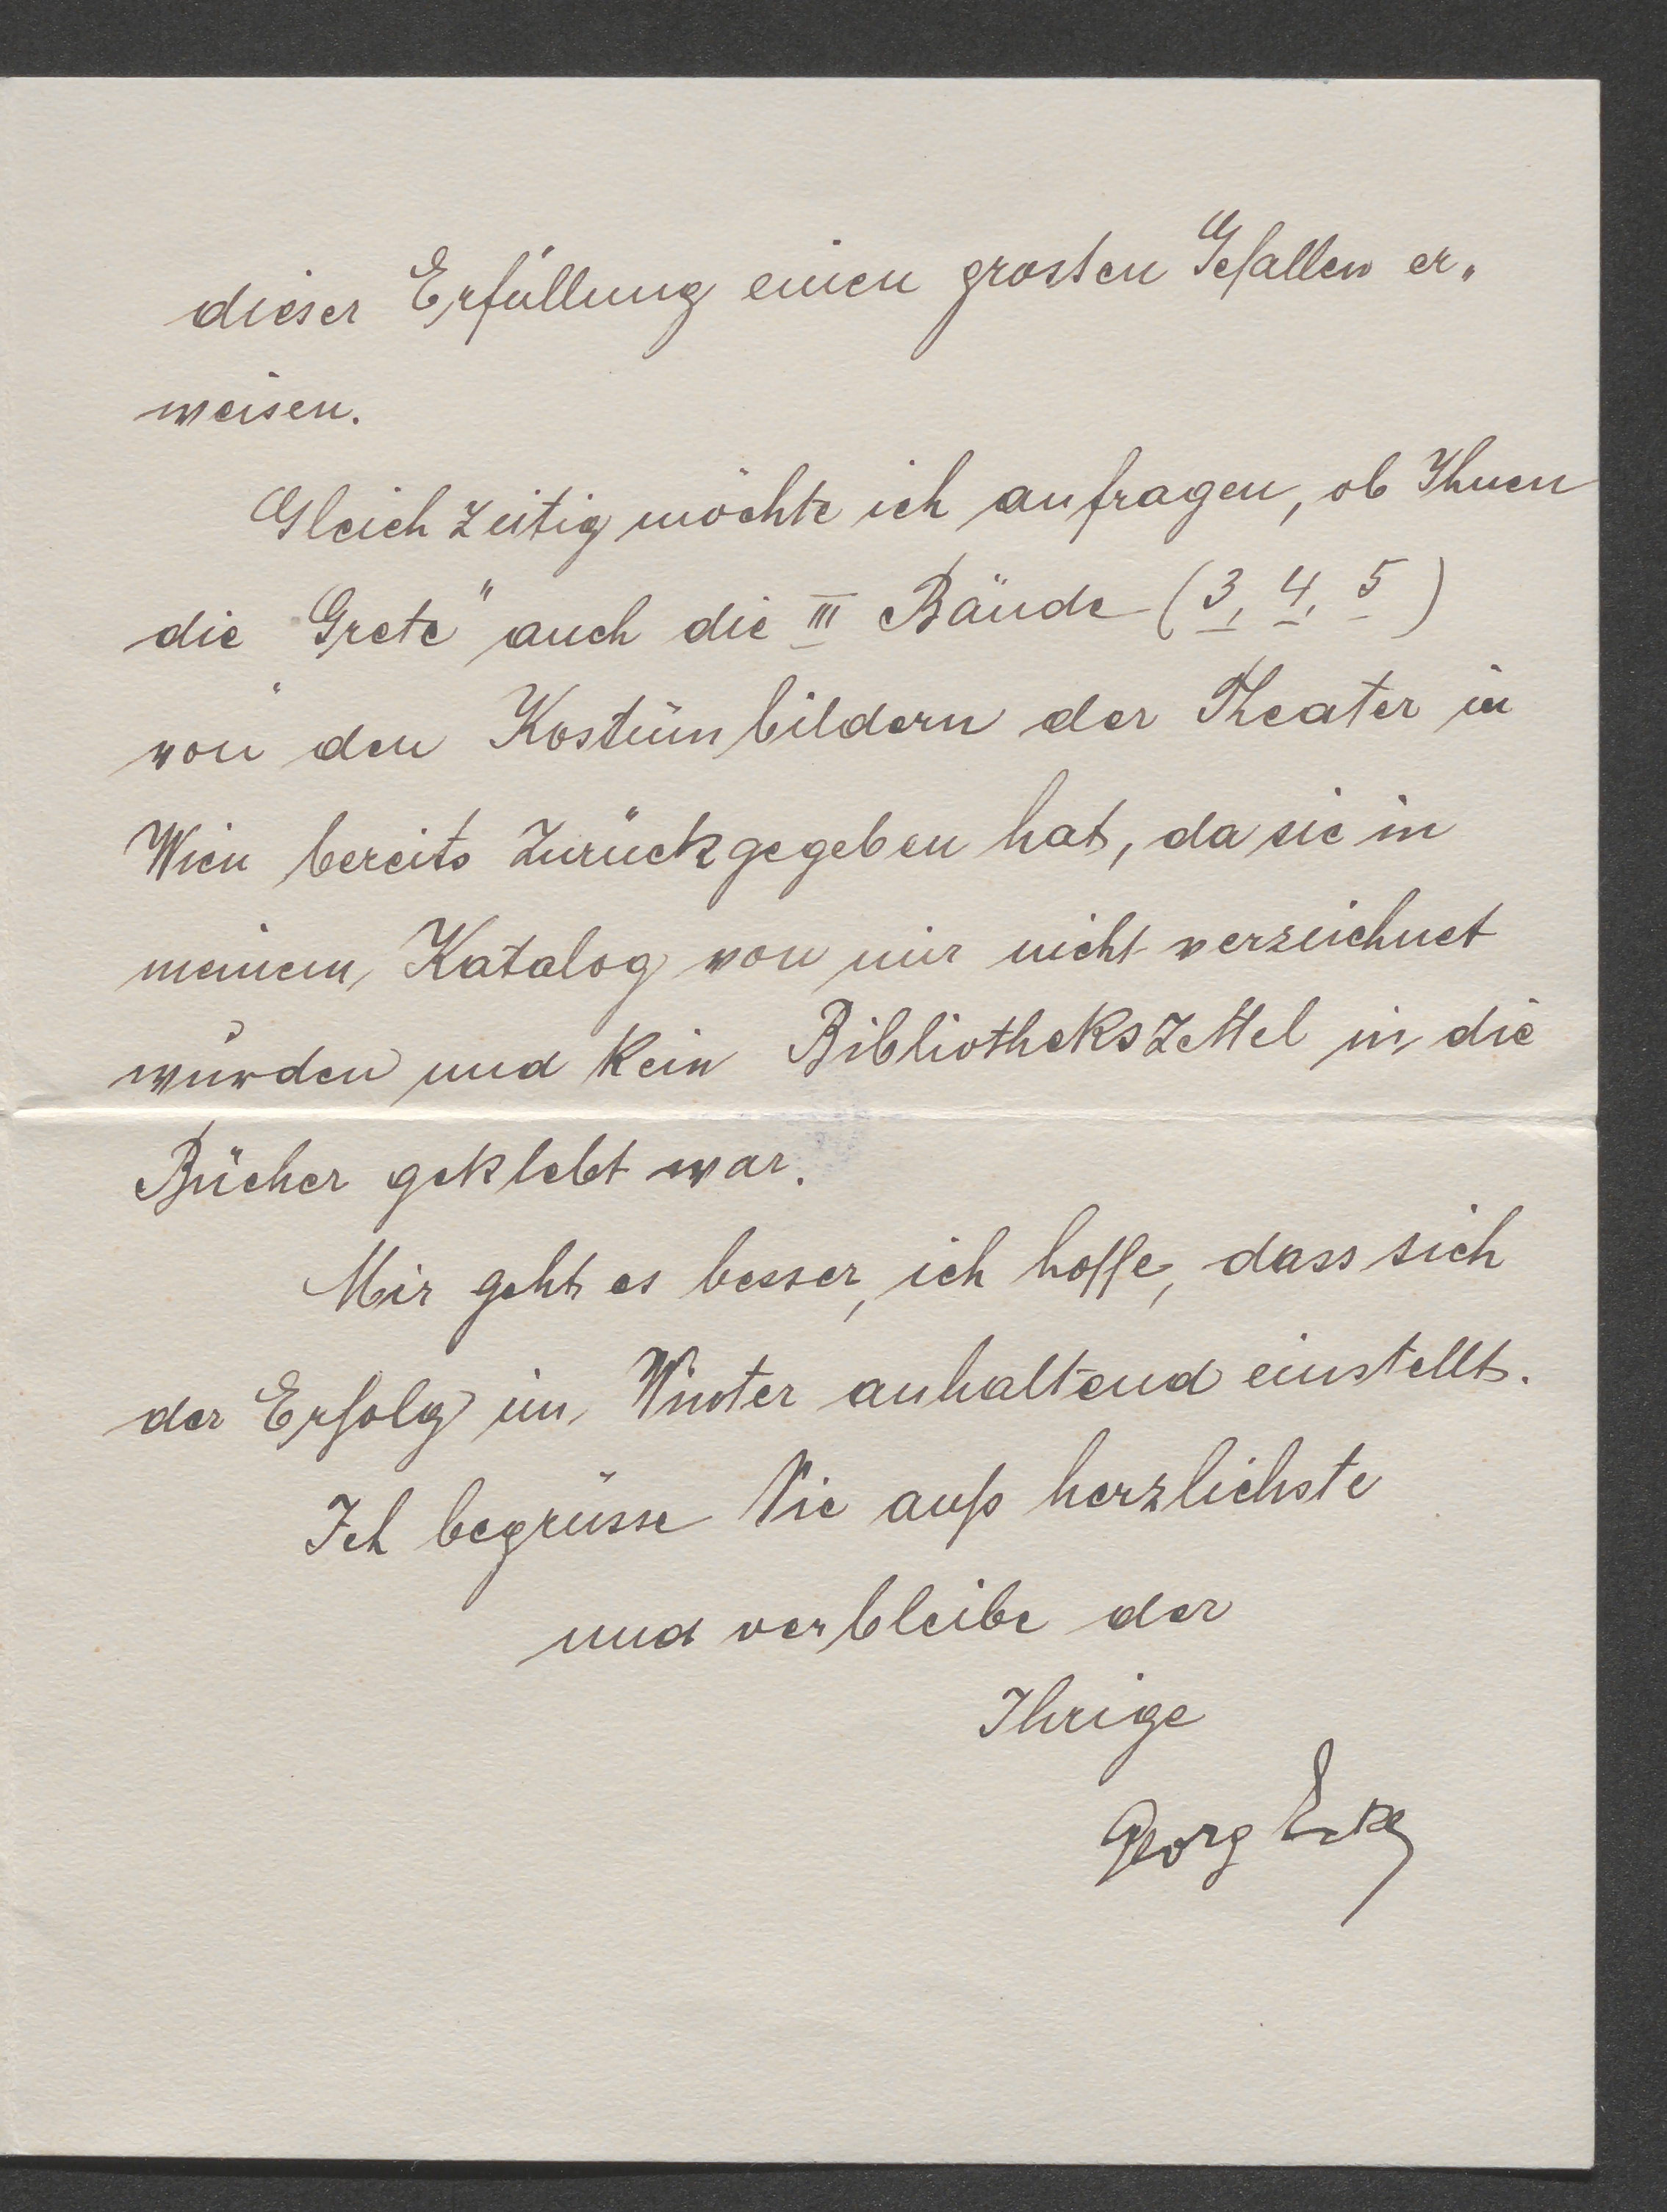 dieser Erfüllung einen grossen Gefallen er„
weisen.
Gleichzeitig möchte ich anfragen, ob Ihnen
die „Grete" auch die III Bände (3, 4, 5)
von den Kostümbildern der Theater in
Wien bereits zurückgegeben hat, da sie in
meinem Katalog von mir nicht verzeichnet
wurden und kein Bibliothekszettel in die
Bücher geklebt war.
Mir geht es besser, ich hoffe, dass sich
der Erfolg im Winter anhaltend einstellt.
Ich begrüsse Sie aufs herzlichste
und verbleibe der
Ihrige
Georg